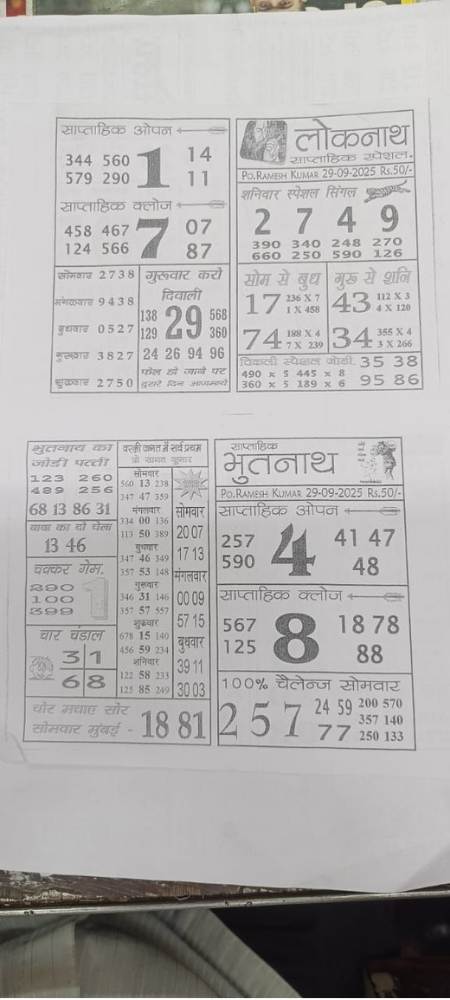 साप्ताहिक ओपन
344 560
579 290
1
14
11
साप्ताहिक क्लोज
458 467
124 566
7
07
87
सोमवार 2738
मंगलवार 9438
बुधवार 0527
गुरुवार 3827
शुक्रवार 2750
गुरूवार करो
दिवाली
138
129
29
568
360
24 26 94 96
फेल हो जाने पर
दुसरे दिन आजमाये
लोकनाथ
साप्ताहिक स्पेशल.
PO.RAMESH KUMAR 29-09-2025 RS.50/-
शनिवार स्पेशल सिंगल
2 7 4 9
390 340 248 270
660 250 590 126
सोम से बुध
17 236 X 7
1 X 458
74 188 X 4
7 X 239
गुरू से शनि
43 112 X 3
4 X 120
34 355 X 4
3 X 266
स्पेशल जोडी 35 38
490 x 5 445 x 8
360 x 5 189 x 6
95 86
भुतनाथ का
जोडी पत्ती
123 260
489 256
68 13 86 31
बाबा का दो चेला
13 46
चक्कर गेम.
290
100
399
1
चार चंडाल
3 1
6 8
चोर मचाए सोर
सोमवार मुंबई - 18 81
वरली जगत में सर्व प्रथम
सोमवार
560 13 238
347 47 359
मंगलवार
334 00 136
113 50 389
बुधवार
347 46 349
357 53 148
गुरूवार
346 31 146
357 57 557
शुक्रवार
678 15 140
456 59 234
शनिवार
122 58 233
125 85 249
सोमवार
20 07
17 13
मंगलवार
00 09
57 15
बुधवार
39 11
30 03
साप्ताहिक
भुतनाथ
PO.RAMESH KUMAR 29-09-2025 RS.50/-
साप्ताहिक ओपन
257
590
4
41 47
48
साप्ताहिक क्लोज
567
125
8
18 78
88
100% चैलेन्ज सोमवार
2 5 7
24 59
77
200 570
357 140
250 133